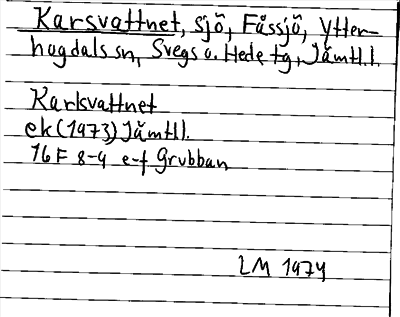 Karsvattnet, sjö, Fåssjö, Ytter-
hogdals sn, Svegs o. Hede tg, Jämtl.l.
Karkvattnet
ek (1973) Jämtl l.
16 F 8-9 e-f Grubban
LM 1974